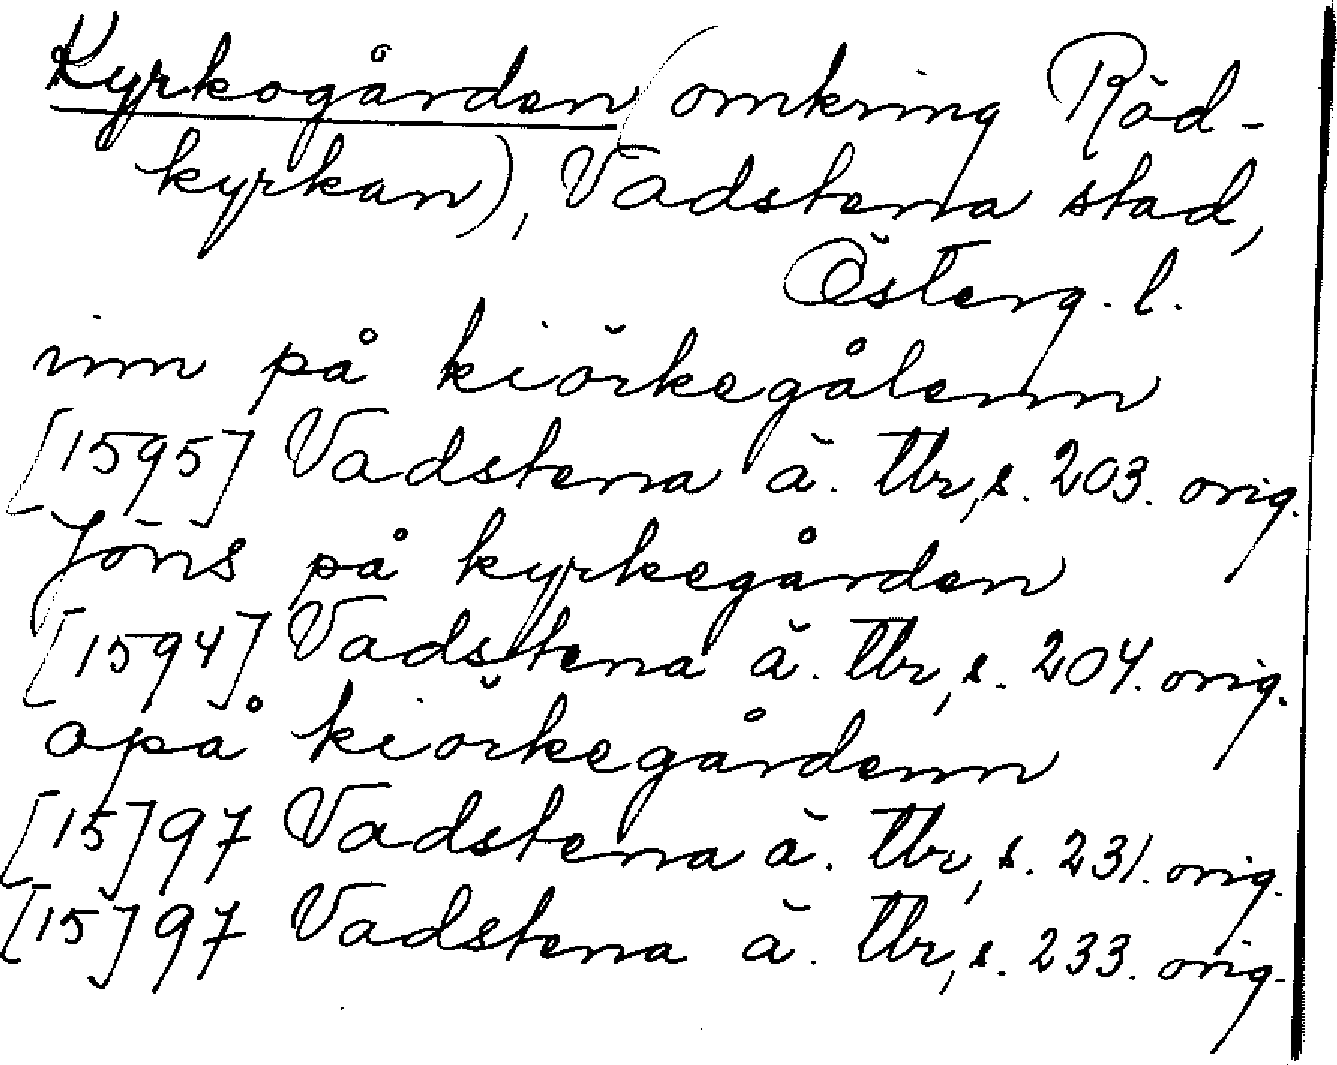 Kyrkogården (omkring Röd-
kyrkan), Vadstena stad,
Österg. l.
inn på kiörkegålenn
[1595] Vadstena ä. tbr, s. 203. orig.
Jöns på kyrkegården
[1594] Vadstena ä. tbr, s. 204. orig.
opå kiörkegårdenn
[15]97 Vadstena ä. tbr, s. 231. orig.
[15]97 Vadstena ä. tbr, s. 233. orig.